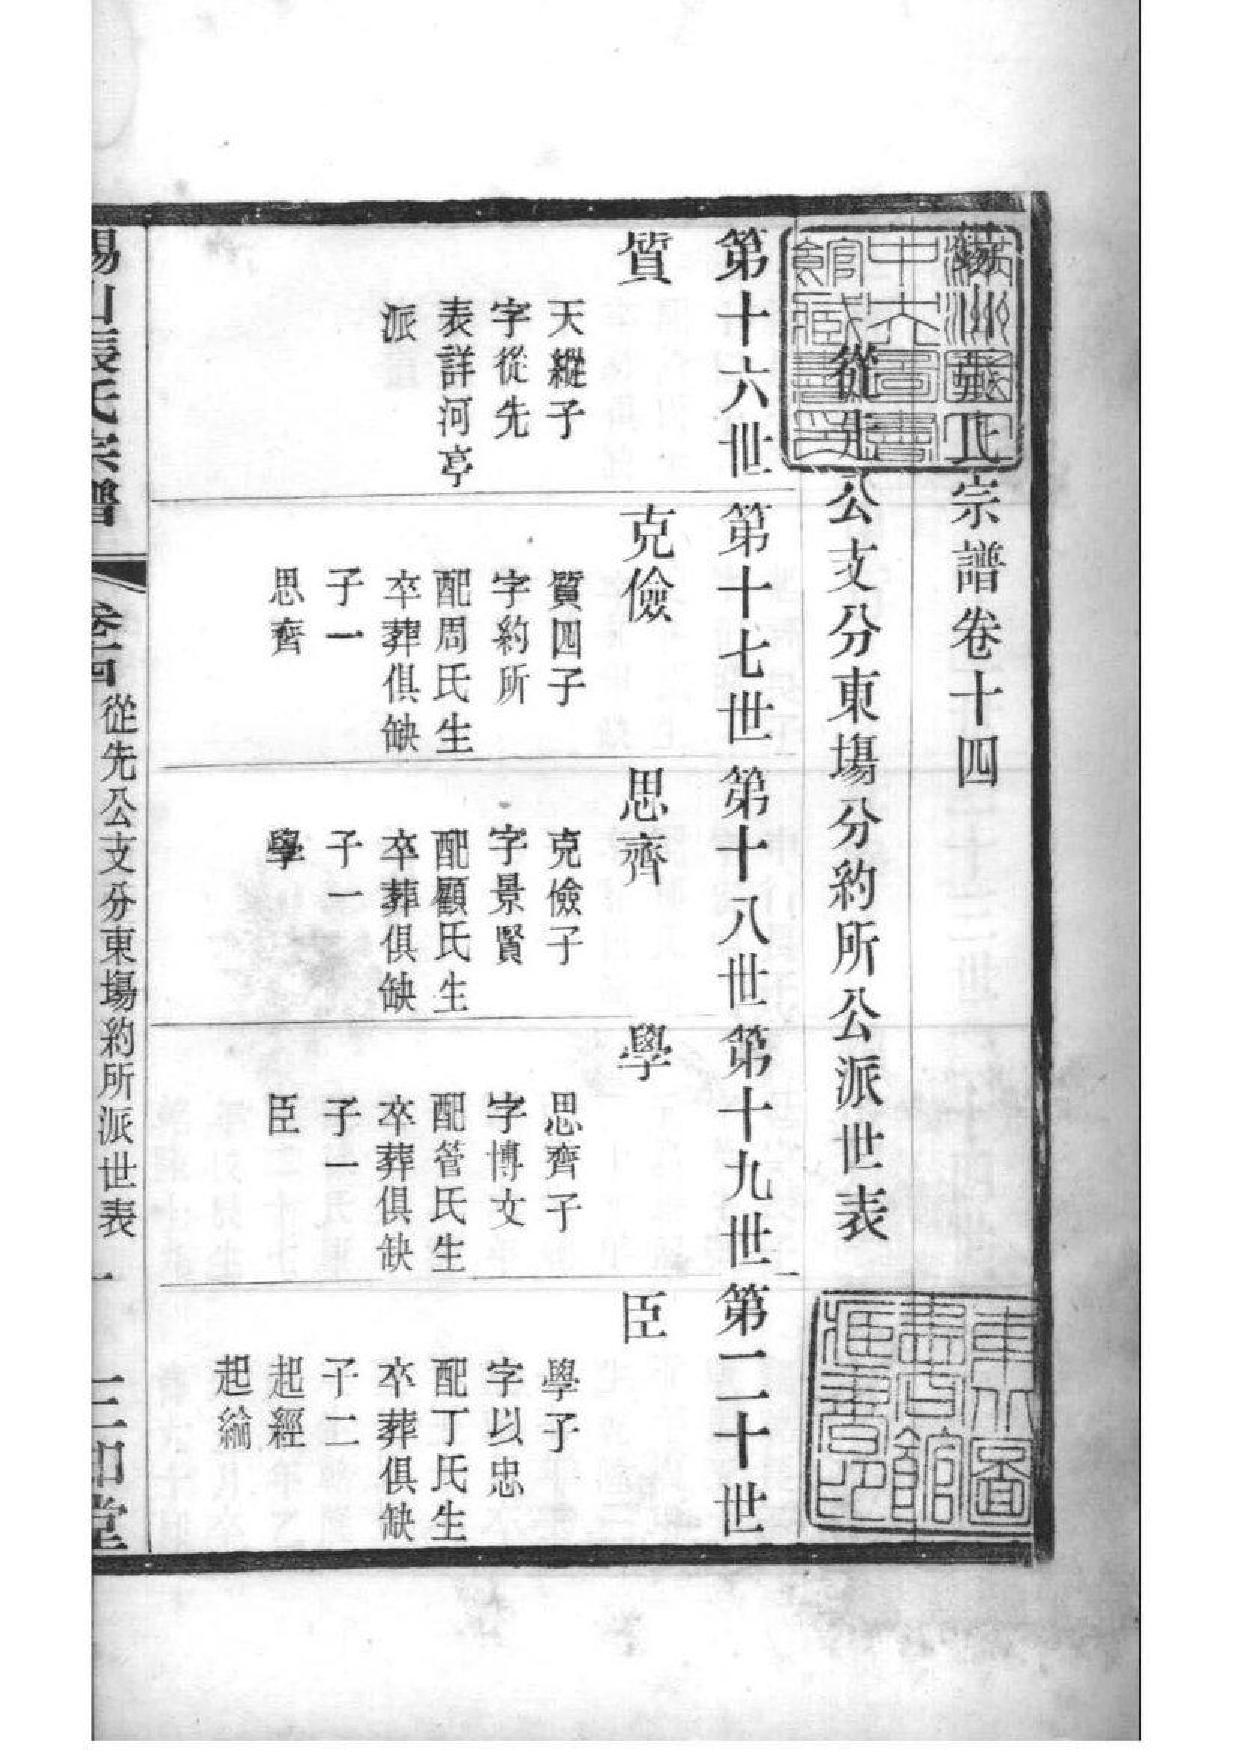 氏宗譜卷十四
從先公支分東塲分約所公派世表
第十六世
第十七世
第十八世
第十九世
第二十世
質
天縱子
字從先
表詳河亭
派
克儉
質四子
字約所
配周氏生
卒葬俱缺
子一
思齊
思齊
克儉子
字景賢
配顧氏生
卒葬俱缺
子一
學
學
思齊子
字博文
配管氏生
卒葬俱缺
子一
臣
臣
學子
字以忠
配丁氏生
卒葬俱缺
子二
起經
起綸
氏宗譜
卷十四
從先公支分東塲約所派世表
一
三和堂